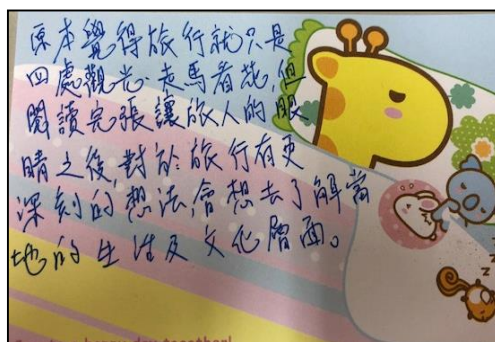 原本覺得旅行就只是
四處觀光、走馬看花,但
閱讀完張讓旅人的眼
睛之後對於旅行有更
深刻的想法,會想去了解當
地的生活及文化層面。